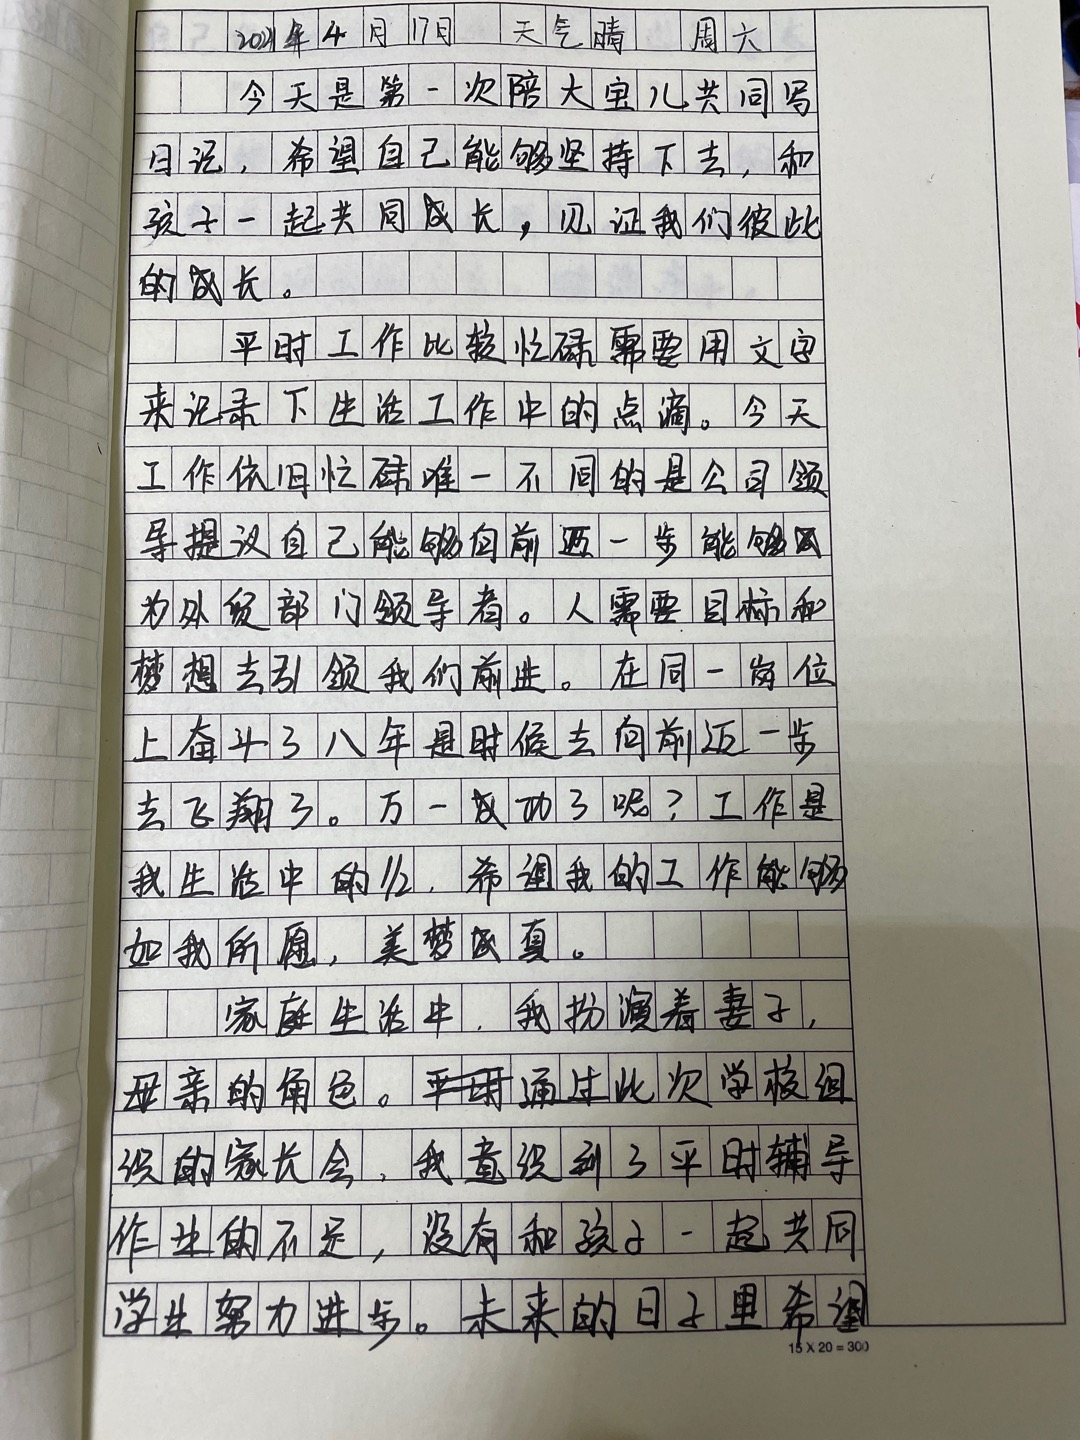 2021年4月17日 天气晴 周六
今天是第一次陪大宝儿共同写
日记，希望自己能够坚持下去，和
孩子一起共同成长，见证我们彼此
的成长。
平时工作比较忙碌需要用文字
来记录下生活工作中的点滴。今天
工作依旧忙碌唯一不同的是公司领
导提议自己能够向前迈一步能够成
为外贸部门领导者。人需要目标和
梦想去引领我们前进。在同一岗位
上奋斗了八年是时候去向前迈一步
去飞翔了。万一成功了呢？工作是
我生活中的1/2，希望我的工作能够
如我所愿，美梦成真。
家庭生活中，我扮演着妻子，
母亲的角色。平时通过此次学校组
织的家长会，我意识到了平时辅导
作业的不足，没有和孩子一起共同
学业努力进步。未来的日子里希望
15 X 20 = 300